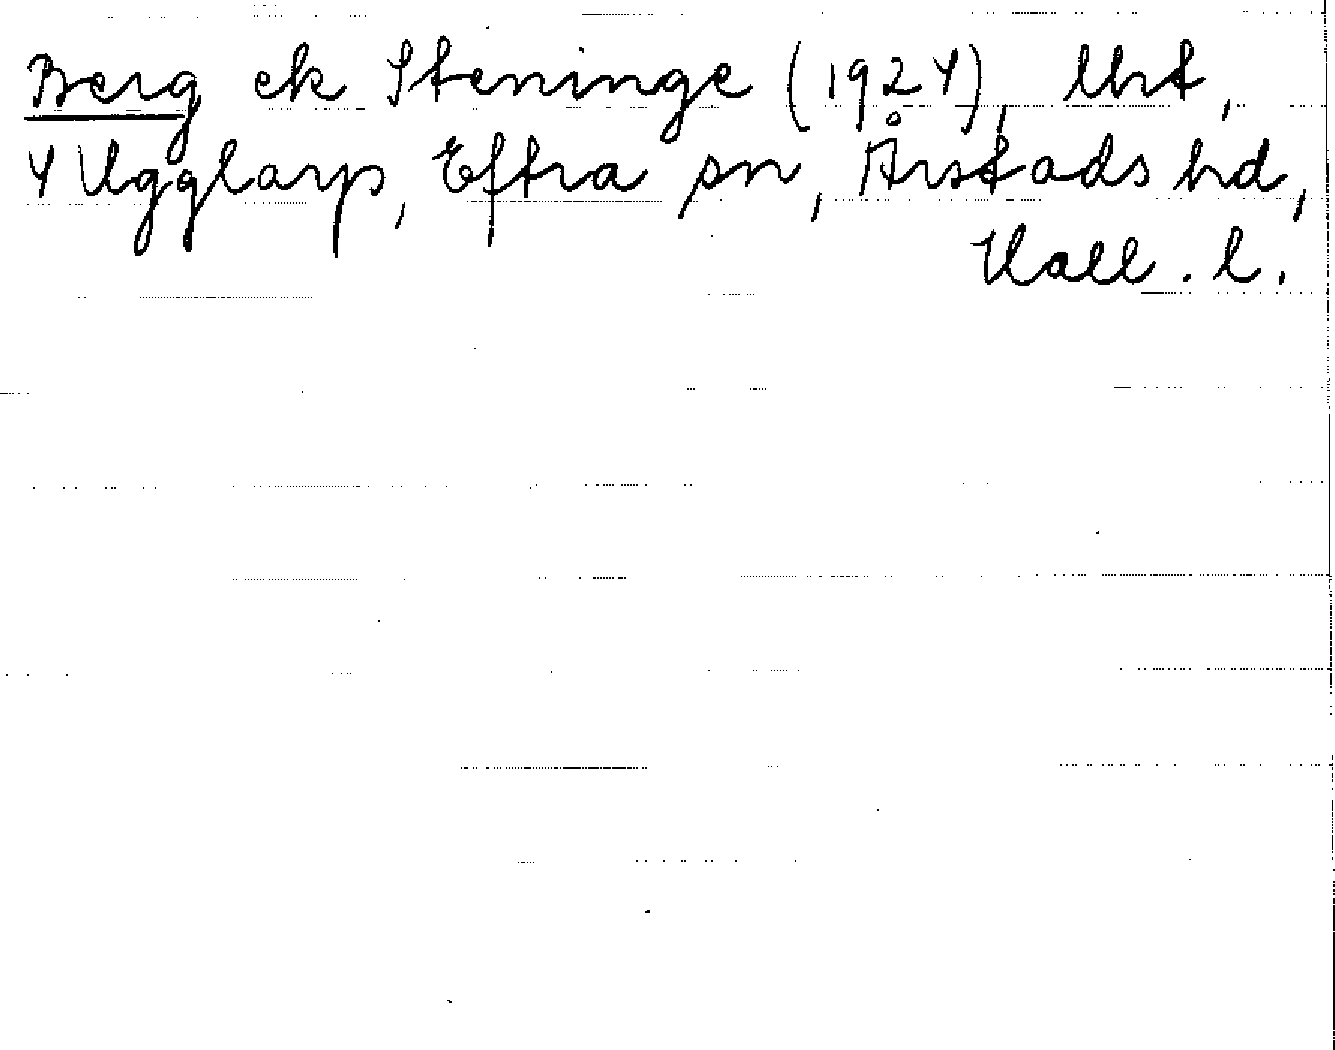 Berg ek Steninge (1924), lht,
4 Ugglarp, Eftra sn, Årstads hd,
Hall. l.